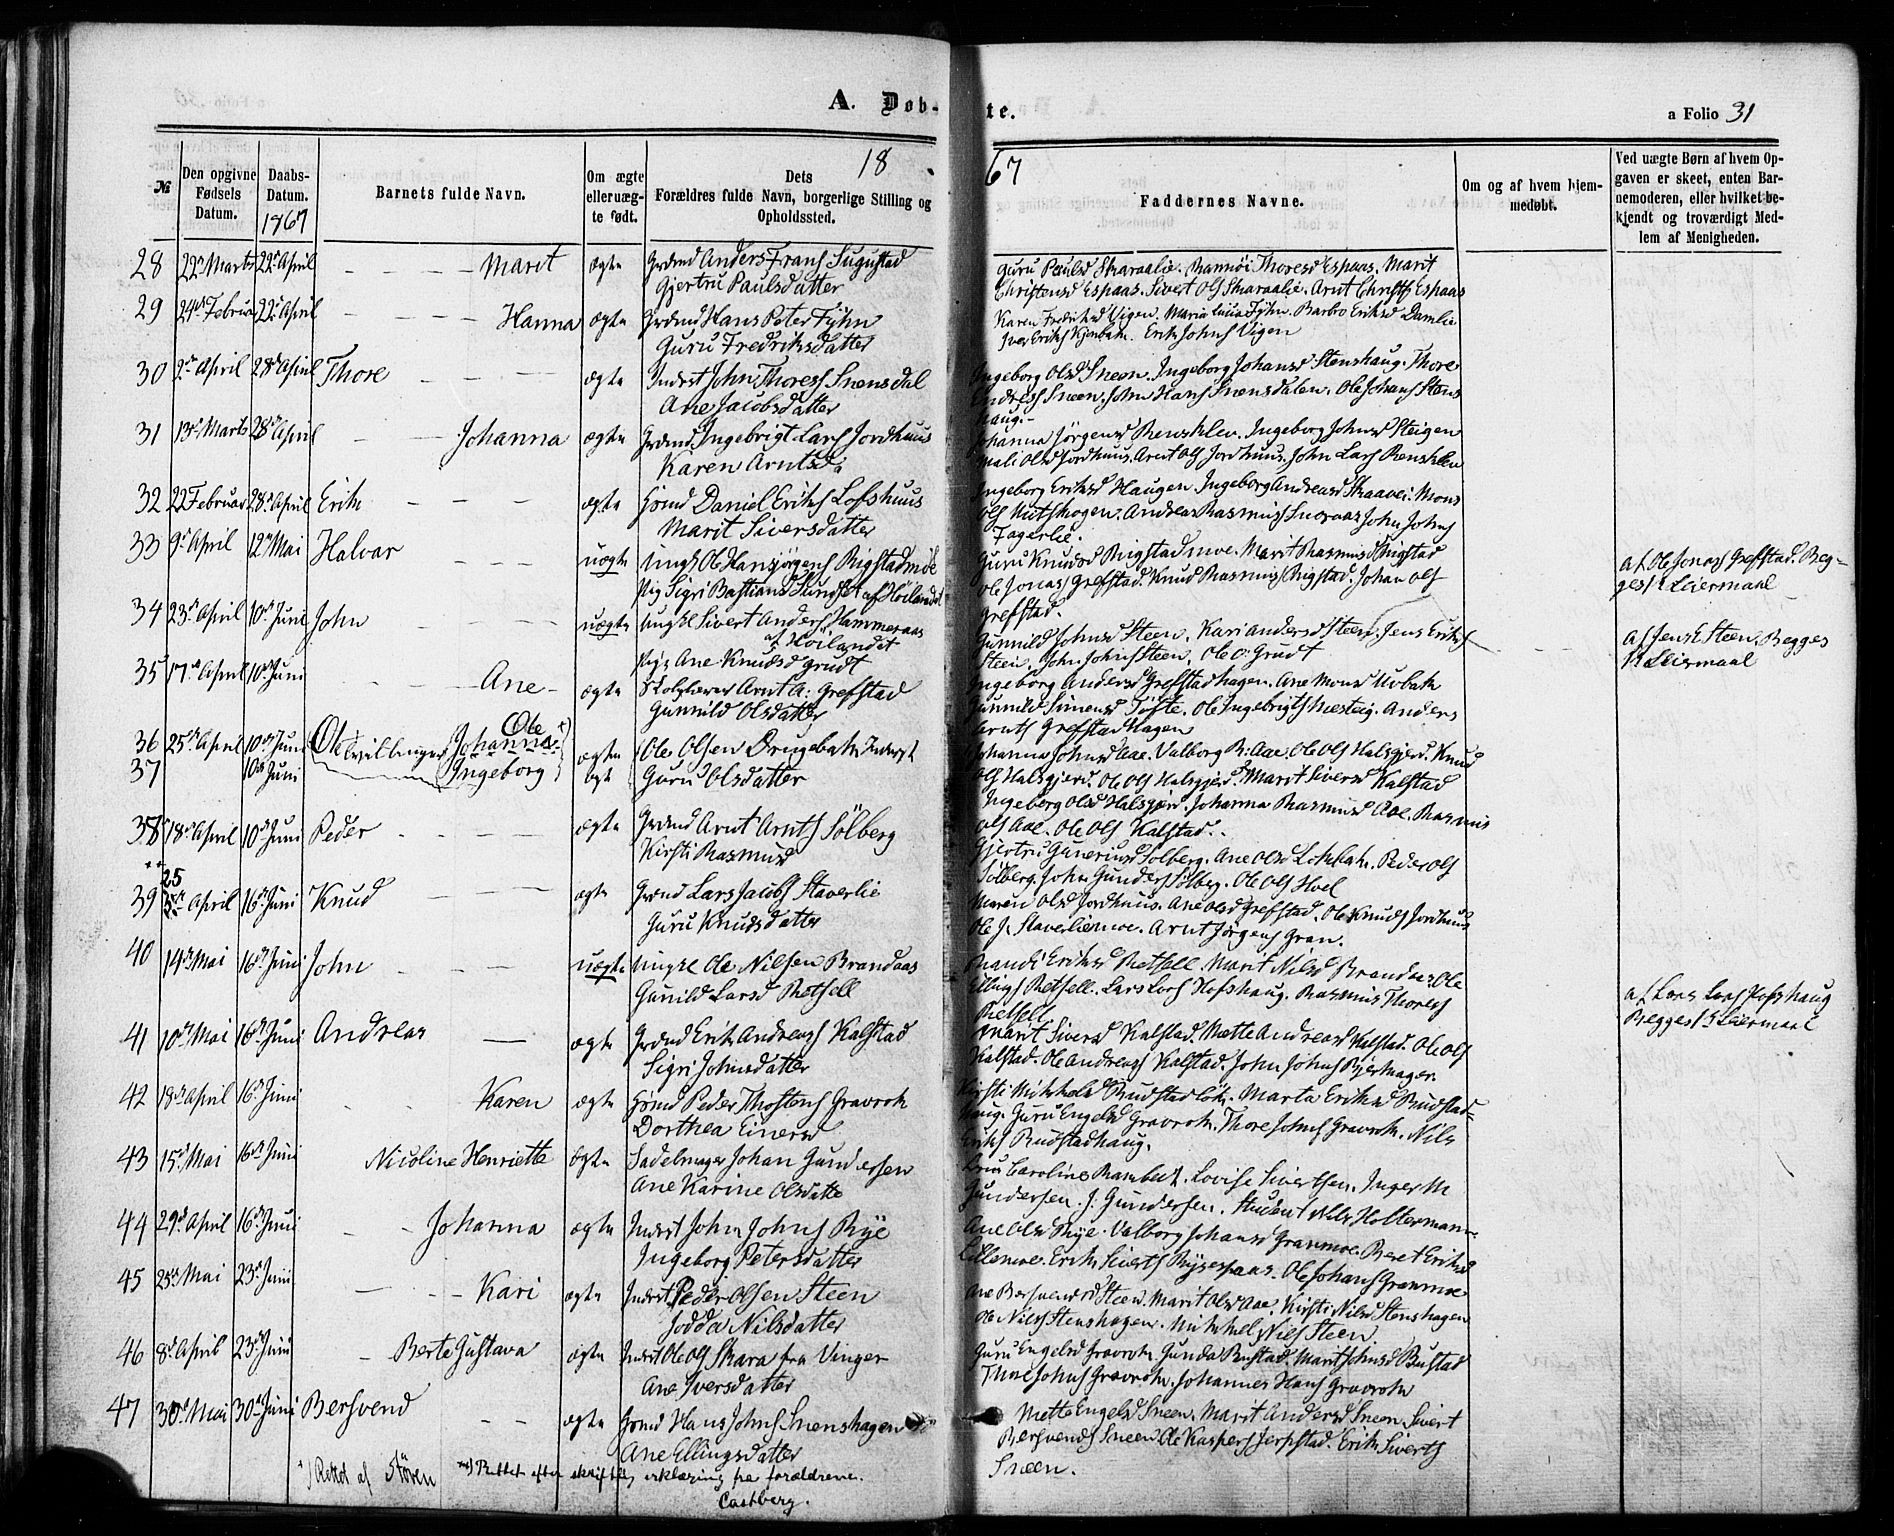 A. Døb-
te.
a Folio 31
18
67
№
Den opgivne Fødsels Datum.
Daabs-Datum.
1867
Barnets fulde Navn.
Om ægte eller uæg-te født.
Dets Forældres fulde Navn, borgerlige Stilling og Opholdssted.
Faddernes Navne.
Om og af hvem hjem-medøbt.
Ved uægte Børn af hvem Op-gaven er skeet, enten Bar-nemoderen, eller hvilket be-kjendt og troværdigt Med-lem af Menigheden.
28 22de Marts 22de April Marit ægte Grdmd Anders Frans Sugustad
Gjertru Paulsdatter
Guru Paulsd Skaraalie. Thoresd Espaas. Marit
Christensd Espaas. Sivert Ols Skaraalie. Arnt Espaas
29 24de Februar 22de April Hanna ægte Hans Peter Fyhn
Guru Fredriksdatter
Karen Vigen. Maria Lucia Fyhn. Barbo Eriksd Damlie
Iver Eriks Erik Johns Vigen
30 2den April 28de April Thore ægte Inderst John Thoress Snensdal
Ane Jacobsdatter
Ingeborg Olsd Sneen. Ingeborg Johansd Stenshaug. Thore
Endress Sneen. John Hans Snensdalen. Ole Johans Stens
haug.
31 13de Marts 28de April Johanna ægte Grdmd. Ingebrigt Lars Jordhuus
Karen Arntsd.
Johanna Jörgensd Renskleu. Ingeborg Johnsd Steigen
Mali Olsd Jordhuus. Arnt Ols Jordhuus. John Lars
32 22 Februar 28de April Erik ægte Daniel Eriks Lofshuus
Marit Siversdatter
Ingeborg Eriksd Haugen Ingeborg Andreasd Mons
Ols Andreas Rasmus John Johns
Fagerlie.
33 9de April 12te Mai Halvar uægte Ungk Ole Hansjörgens Rigstadmoe
Pig Sigri Bastians af Höilandet
Guru Knudsd Rigstadmoe. Marit Rasmusd Rigstad
Ole Jonas Grefstad. Knud Rasmus Rigstad. Johan Ols
Grefstad.
af Ole Jonas Grefstad. Beg-
ges 1 Leiermaal
34 23de April 10de Juni John uægte Ungkl Sivert Anders Hammeraas
af Höilandet
Pige Ane Knudsd Grudt
Gunnild Johnsd Steen. Kari Andersd Steen. Jens Eriks
Steen. John Johns Steen. Ole O: Grudt
af Jens E Steen. Begges
1ste Leiermaal
35 17de April 10de Juni Ane ægte Skolelærer Arnt A: Grefstad
Gunnild Olsdatter
Ingeborg Andersd Grefstadhagen. Ane Monsd
Gunnild Simensd Tofte. Ole Ingebrigts Anders
Arnts Grefstadhagen
36 25de April 10de Juni Ole Tvillinger Johanna Ole ægte Ole Olsen Drugebak Inderst
37 10de Juni Ingeborg ægt Guru Olsdatter
Johanna Johnsd Aae. Valborg R: Aae. Ole Ols Halsgjerd. Knud
Ols Halsgjerd. Ole Ols Halsgjerd. Marit Siversd Kalstad
Ingeborg Olsd Halsgjerd. Johanna Rasmusd Aae. Rasmus
Ols Aae. Ole Ols Kalstad.
38 18de April 10de Juni Peder ægte Grdmd Arnt Arnts Sölberg
Kirsti Rasmusd
Gjertru Guneriusd Solberg. Ane Olsd Peder Ols
Sölberg. John Gunders Sölberg. Ole Ols Hoel
39 25 April 16de Juni Knud ægte Grdmd Lars Jacobs Staverlie
Guru Knudsdatter
Maren Olsd Jordhuus. Ane Olsd Grefstad. Ole Knuds Jordhuus
Ole J. Staverliemoe. Arnt Jörgens Gran.
40 14de Mai 16de Juni John uægte Ungkl Ole Nilsen Brandaas
Gunild Larsd Retsell
Eriksd Retsell. Marit Nilsd Brandaas. Ole
Ellings Retsell. Lars Lars Hofshaug. Rasmus Thores
Retsell.
af Lars Lars Hofshaug
Begges Leiermaal
41 10de Mai 16de Juni Andreas ægte Grdmd Erik Andreas Kalstad
Sigri Johnsdatter
Marit Siversd Kalstad. Mette Andreasd Kalstad. Ole Ols
Kalstad. Ole Andreas Kalstad. John Johns
42 18de April 16de Juni Karen ægte Peder Thostens Gravrok
Dorthea Einersd
Kirsti Mikkelsd Marta Eriksd Rudstad-
haug. Guru Engelsd Gravrok. Thore Johns Gravrok. Nils
Eriks Rudstadhaug.
43 15de Mai 16de Juni Nicoline Henriette ægte Sadelmager Johan Gundersen
Ane Karine Olsdatter
Caroline Lovise Sivertsen. Inger M
Gundersen. J. Gundersen. Student Nils Holterman
44 29de April 16de Juni Johanna ægte Inderst John Johns Rye
Ingeborg Petersdatter
Ane Olsd Rye. Valborg Johansd Granmoe. Beret Eriksd
Lillemoe. Erik Siverts Ryeespaas. Ole Johans Granmoe
45 25de Mai 23de Juni Kari ægte Inderst Peder Olsen Steen
Jodda Nilsdatter
Ane Bersvendsd Steen. Marit Olsd Aae. Kirsti Nilsd Stenshagen
Ole Nils Stenshagen. Mikkel Nils Steen.
46 8de April 23de Juni Berte Gustava ægte Inderst Ole Ols Skara fra Vinger
Ane Iversdatter
Guru Engelsd Gravrok Gunda Bustad. Marit Johnsd Bustad
Thore Johns Gravrok. Johannes Hans Gravrok
47 30de Mai 30de Juni Bersvend ægte Hans Johns Snenshagen
Ane Ellingsdatter
Mette Engelsd Sneen. Marit Andersd Sneen. Sivert
Bersvends Sneen. Ole Kaspers Jerpstad. Erik Siverts
Sneen.
*) Rettet af Stören **) Rettet efter skriftlig erklæring fra forældrene.
Castberg.